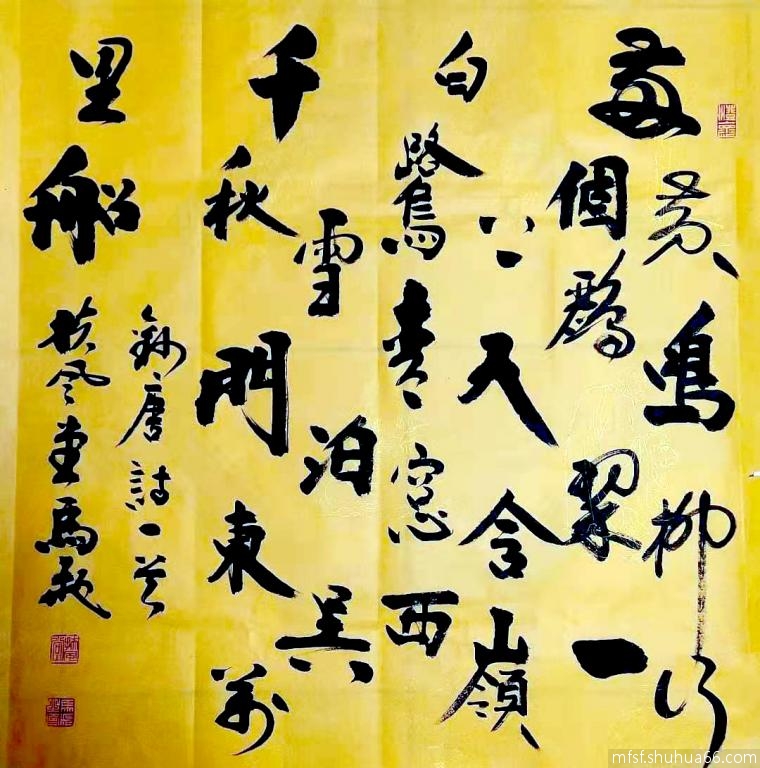 兩個黄鸝鳴翠柳一行
白鷺上青天窓含西嶺
千秋雪門泊東吴萬
里船
錄唐詩一首
扶風堂馬
mfsf.shuhua66.com